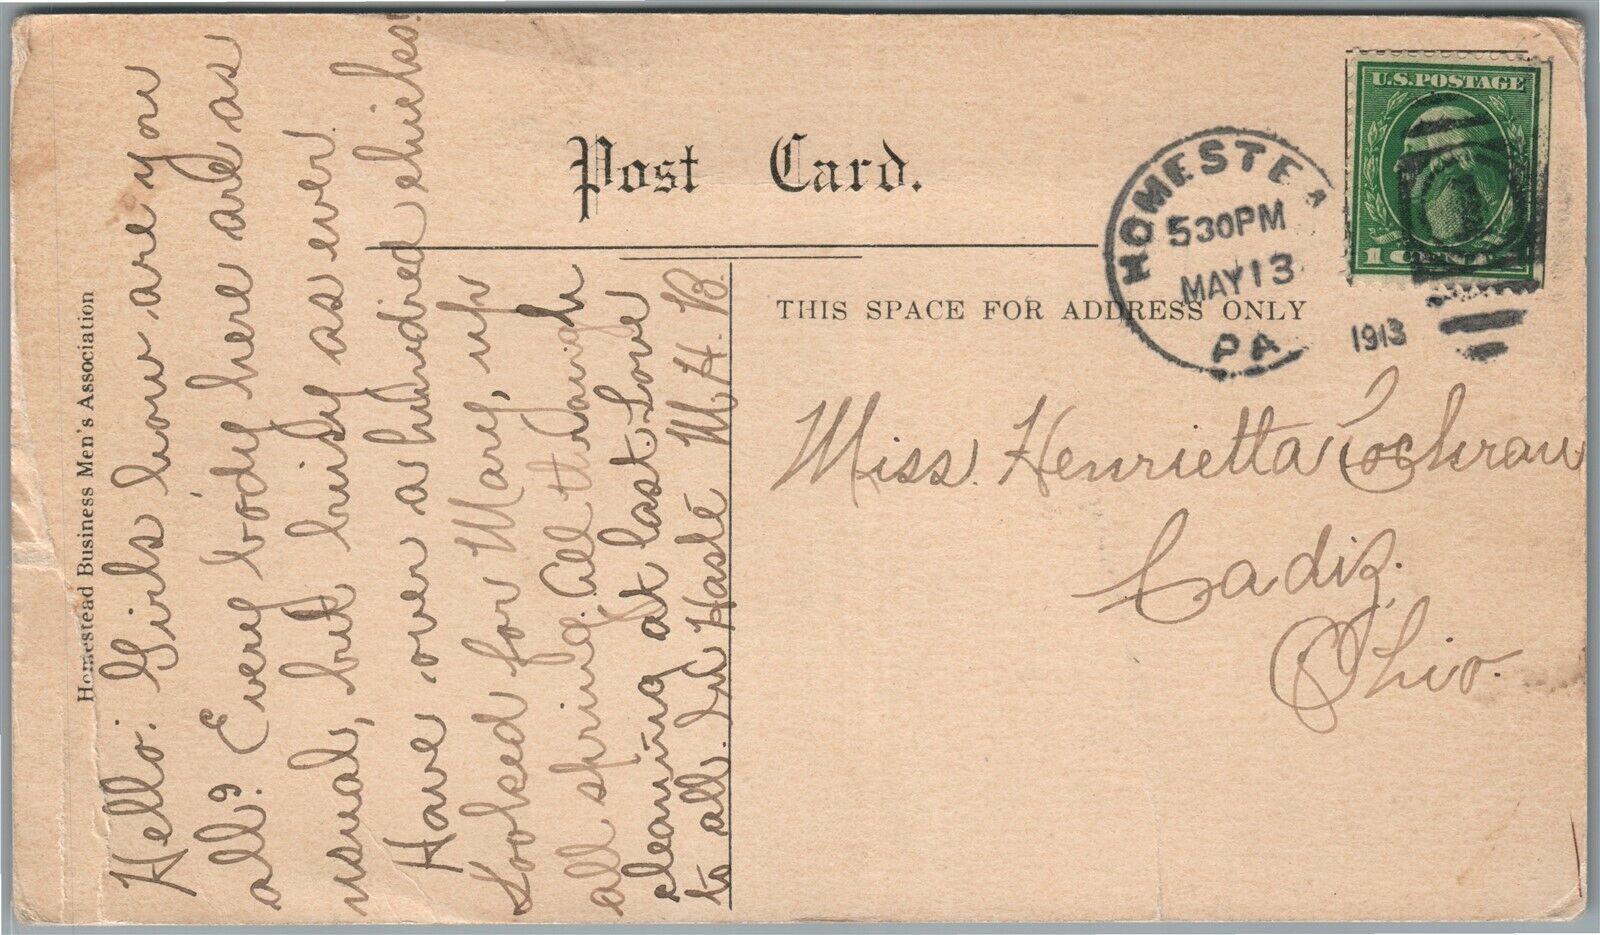 Homestead Business Men's Association
Hello. Girls how are you
all? Every body here are as
usual, but busy as ever.
Have over a hundred chicks.
Looked for Mary, up
all spring. All through
cleaning at last. Love
to all. In Haste M. H. B.
Post Card.
THIS SPACE FOR ADDRESS ONLY
HOMESTEA
530PM
MAY 13
1913
PA
U.S. POSTAGE
1 CENT
Miss. Henrietta Cochran
Cadiz.
Ohio.